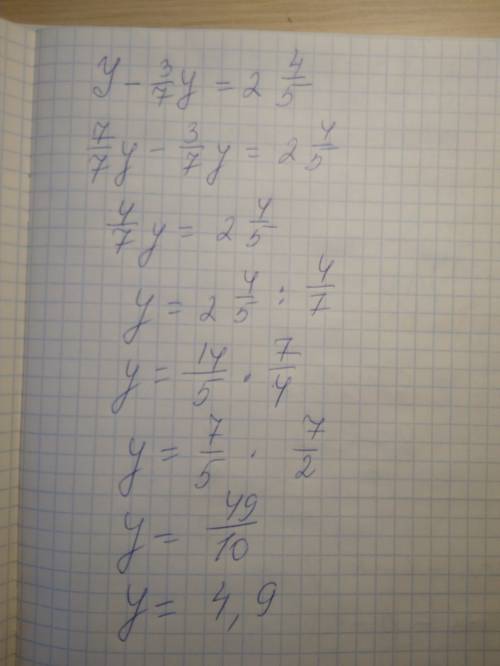 y - 3/7 y = 2 4/5
7/7 y - 3/7 y = 2 4/5
4/7 y = 2 4/5
y = 2 4/5 : 4/7
y = 14/5 · 7/4
y = 7/5 · 7/2
y = 49/10
y = 4,9